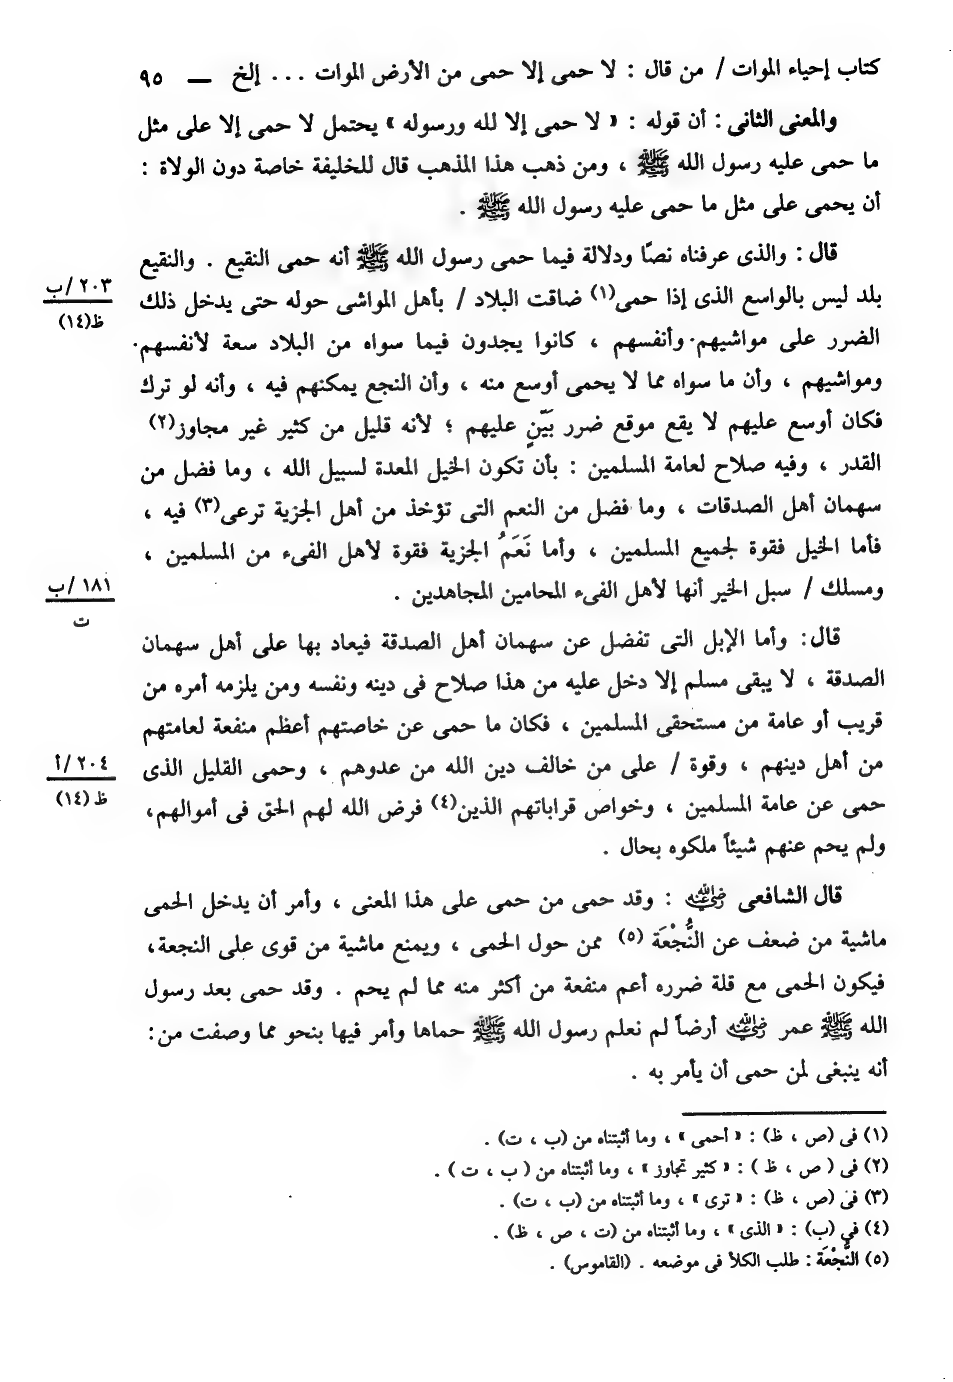 كتاب إحياء الموات / من قال : لا حمى إلا حمى من الأرض الموات ... إلخ — ٩٥
والمعنى الثانى : أن قوله : « لا حمى إلا لله ورسوله » يحتمل لا حمى إلا على مثل
ما حمى عليه رسول الله ﷺ ، ومن ذهب هذا المذهب قال للخليفة خاصة دون الولاة :
أن يحمى على مثل ما حمى عليه رسول الله ﷺ .
قال : والذى عرفناه نصًا ودلالة فيما حمى رسول الله ﷺ أنه حمى النقيع . والنقيع
بلد ليس بالواسع الذى إذا حمى(١) ضاقت البلاد / بأهل المواشى حوله حتى يدخل ذلك
٢٠٣/ب
ظ(١٤)
الضرر على مواشيهم وأنفسهم ، كانوا يجدون فيما سواه من البلاد سعة لأنفسهم
ومواشيهم ، وأن ما سواه مما لا يحمى أوسع منه ، وأن النجع يمكنهم فيه ، وأنه لو ترك
فكان أوسع عليهم لا يقع موقع ضرر بَيّنٍ عليهم ؛ لأنه قليل من كثير غير مجاوز(٢)
القدر ، وفيه صلاح لعامة المسلمين : بأن تكون الخيل المعدة لسبيل الله ، وما فضل من
سهمان أهل الصدقات ، وما فضل من النعم التى تؤخذ من أهل الجزية ترعى(٣) فيه ،
فأما الخيل فقوة لجميع المسلمين ، وأما نَعَمُ الجزية فقوة لأهل الفىء من المسلمين ،
ومسلك / سبل الخير أنها لأهل الفىء المحامين المجاهدين .
١٨١/ب
ت
قال : وأما الإبل التى تفضل عن سهمان أهل الصدقة فيعاد بها على أهل سهمان
الصدقة ، لا يبقى مسلم إلا دخل عليه من هذا صلاح فى دينه ونفسه ومن يلزمه أمره من
قريب أو عامة من مستحقى المسلمين ، فكان ما حمى عن خاصتهم أعظم منفعة لعامتهم
من أهل دينهم ، وقوة / على من خالف دين الله من عدوهم ، وحمى القليل الذى
٢٠٤/أ
ظ (١٤)
حمى عن عامة المسلمين ، وخواص قراباتهم الذين(٤) فرض الله لهم الحق فى أموالهم،
ولم يحم عنهم شيئاً ملكوه بحال .
قال الشافعى رضي الله عنه : وقد حمى من حمى على هذا المعنى ، وأمر أن يدخل الحمى
ماشية من ضعف عن النُّجْعَة (٥) ممن حول الحمى ، ويمنع ماشية من قوى على النجعة،
فيكون الحمى مع قلة ضرره أعم منفعة من أكثر منه مما لم يحم . وقد حمى بعد رسول
الله ﷺ عمر رضي الله عنه أرضاً لم نعلم رسول الله ﷺ حماها وأمر فيها بنحو مما وصفت من :
أنه ينبغى لمن حمى أن يأمر به .
(١) فى (ص ، ظ) : « أحمى » ، وما أثبتناه من (ب ، ت) .
(٢) فى ( ص ، ظ ) : « كثير تجاوز » ، وما أثبتناه من ( ب ، ت ) .
(٣) فى (ص ، ظ) : « ترى » ، وما أثبتناه من (ب ، ت) .
(٤) فى (ب) : « الذى » ، وما أثبتناه من (ت ، ص ، ظ) .
(٥) النُّجْعَة : طلب الكلأ فى موضعه . (القاموس) .